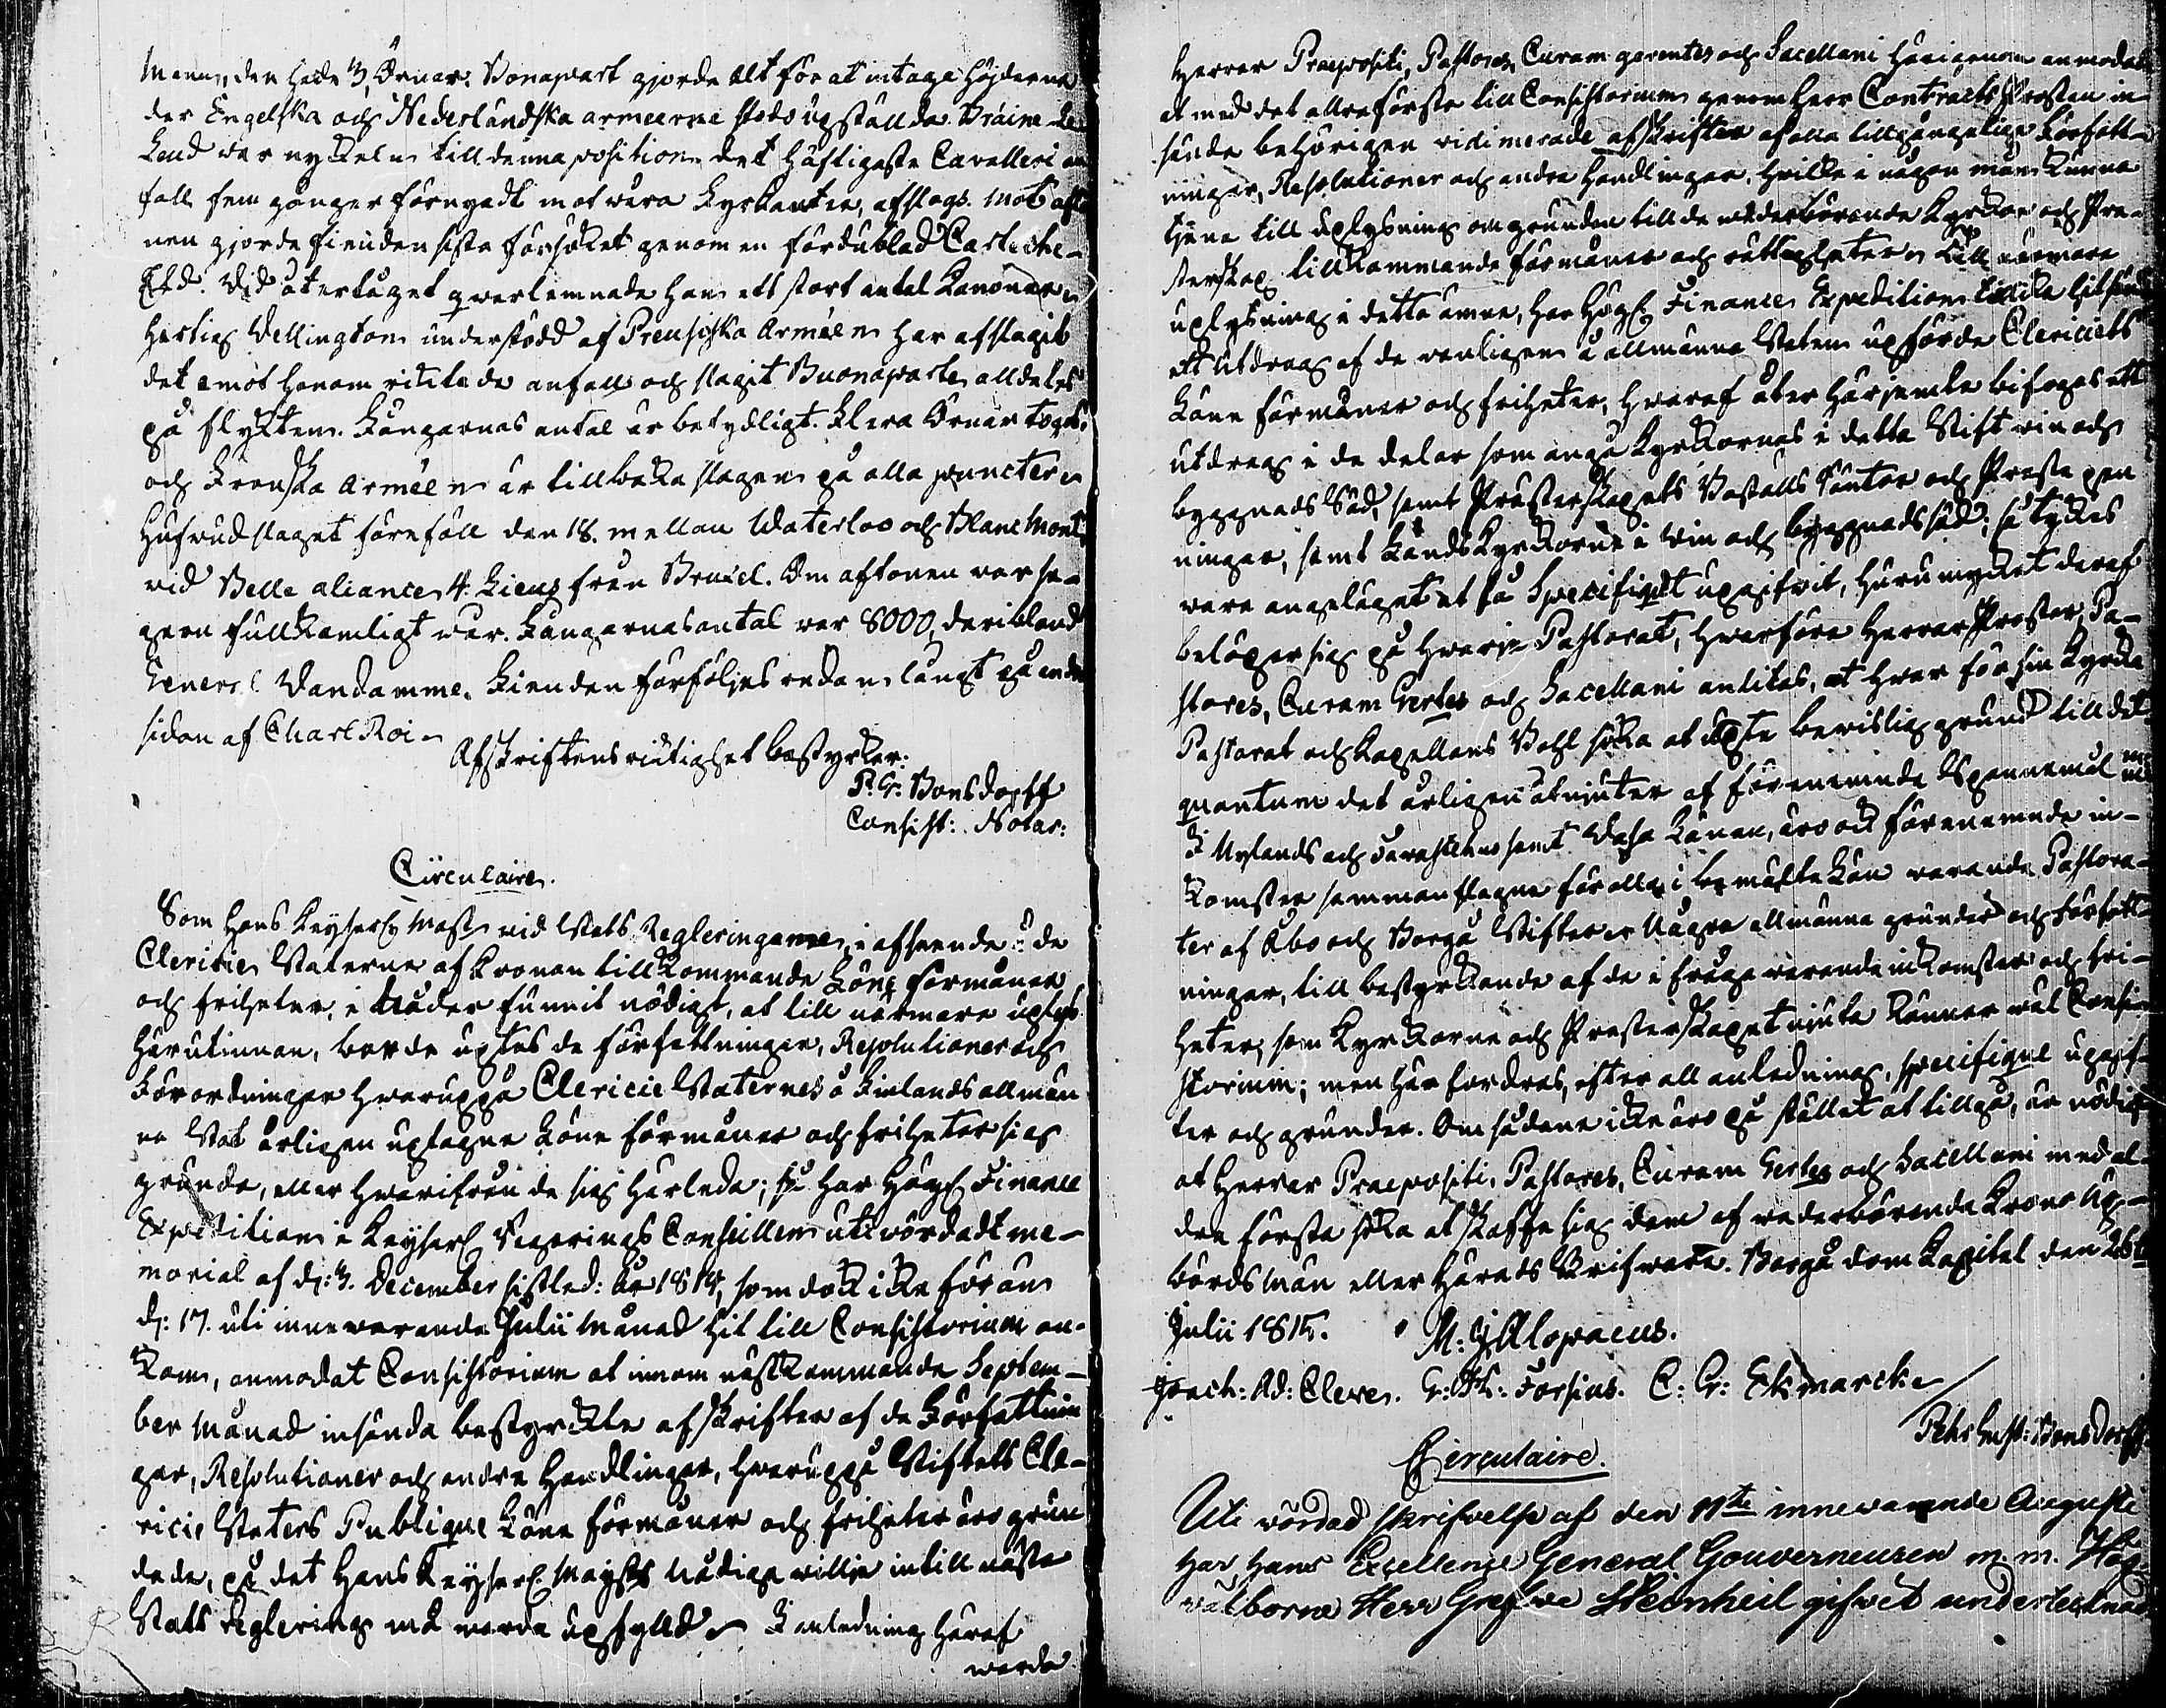 den hade 3 Örnar. Bonapart gjorde alt för at intaga höjderna
der Engelska och Nederländska armeerne stodo upställda. Braine-le-
Leud var nyckeln till denna position. det häftigaste Cavalleri an-
fall fem gånger förnyadt mot wåra Fyrkanter, afslogs. Mot afto-
nen gjorde fienden sista försöket genom en fördublad
Eld. Vid återtåget qvarlemnade han ett stort antal Kanoner
Hertig Wellington understödd af Preussiska Arméen har afslagit
det emot honom riktade anfall och slagit Buonaparte alldeles
på flykten. Fångarnas antal är betydligt. Flera Örnar togos,
och Franska Arméen är tillbaka slagen på alla puncter
Hufvudslaget förefoll den 18. mellan Waterloo och Plane Mont
vid Belle aliance 4. Lieus från Bruxel. Om aftonen war se-
gern fullkomligt wår. Fångarnas antal war 8000, deribland
General Vandamme. Fienden förföljes redan långt på andra
sidan af Charl Roi
Afskriftens riktighet bestyrker:
P. G. Bonsdorff
Consist: Notar:
Circulaire.
Som Hans Keyserl. Maj:t vid Stats Regleringarne, i afseende å de
Clericie Staterne af Kronan tillkommande Löne förmåner
och friheter, i Nåder funnit nödigt, at till närmare uplys
härutinnan, borde uptes de författningar, Resolutioner och
Förordningar hwaruppå Clericie Staternes å Finlands allmän
na Stat årligen uptagne Löne förmåner och friheter sig
grunda, eller hwarifrån de sig härleda; så har Högl. Finance
Expedition i Keyserl. Regerings Conseillen uti wördadt me-
morial af d: 3. December sistled: År 1814, som dock icke förän
d: 17. uti innewarande Julii Månad hit till Consistorium an-
kom, anmodat Consistorium at innom nästkommande Septem-
ber Månad insända bestyrkte afskrifter af de Författnin
gar, Resolutioner och andra Handlingar, hwaruppå Stiftets Cle-
ricie Staters Publique Löne förmåner och friheter äro grun
dade, på det Hans Keyserl. Maj:ts Nådiga willje intill nästa
Stats Reglering må warda upfylld. I anledning häraf
warda
Herrar Praepositi, Pastores, Curam gerentes och Sacellani härigenom anmodade
at med det allraförsta till Consistorium genom Herr Contracts Prosten in-
sända behörigen vidimerade afskrifter af alla tillgängelige Författ-
ningar, Resolutioner och andra Handlingar, hvilka i någon mån kunna
tjena till uplysning om grunden till de wederbörande Kyrkor och Pre-
sterskap tillkommande förmåner och rättigheter. Till närmare
uplysning i detta ämne, har Högl. Finance Expedition hitsändt
ett utdrag af de wanligen å allmänna Staten upförde Clericiets
Löne förmåner och friheter, hwaraf åter härjemte bifogas ett
utdrag i de delar som angå Kyrkornas i detta Stift win och
byggnads Säd, samt Prästerskapets Boställs räntor och Presta pen
ningar, samt Landskyrkorne i Win och byggnadssäd; så tyckes
ware angeläget at få Specifiqt upgifwit, huru mycket deraf
belöper sig på hwarje Pastorat, hwarföre Herrar Prostar, Pa-
stores, Curam Gertes och Sacellani anlitas, at hwar för sin Kyrka
Pastorat och Kapellans Bohl söka at upte bevislig grund till det
quantum det årligen åtnjuter af förenemnde
i Nylands och Tavastehus samt Wasa Länen, äro ock förenemnde in-
komster sammanslagne för alla i bemälte Län warande Pastora-
ter af Åbo och Borgå Stifter. Några allmänna grunder och författ-
ningar, till bestyrkande af de i fråga warande inkomster och fri-
heter, som Kyrkorne och Presterskapet njuta känner wäl Consi-
storium; men här fordras, efter all anledning, specifique upgif-
ter och grunder. Om sådane icke äro på stället at tillgå, är nödigt
at Herrar Praepositi, Pastores, Curam Gertes och Sacellani med al-
dra första söka at skaffa sig dem af wederbörande Krono Up-
bördsmän eller Härads Skrifware. Borgå Dom Kapitel den 26te
Julii 1815. M. J. Alopaeus.
Joach: Ad: Cleve. G: Fr: Forsius. C: G: Ekmarck
Pehr Gust: Bonsdorff
Circulaire.
Uti wördad skrifvelse af den 11te innewarande Augusti
har Hans Excellence General Gouverneuren m. m. Hög-
wälborne Herr Grefwe Steinheil gifvit undertecknad